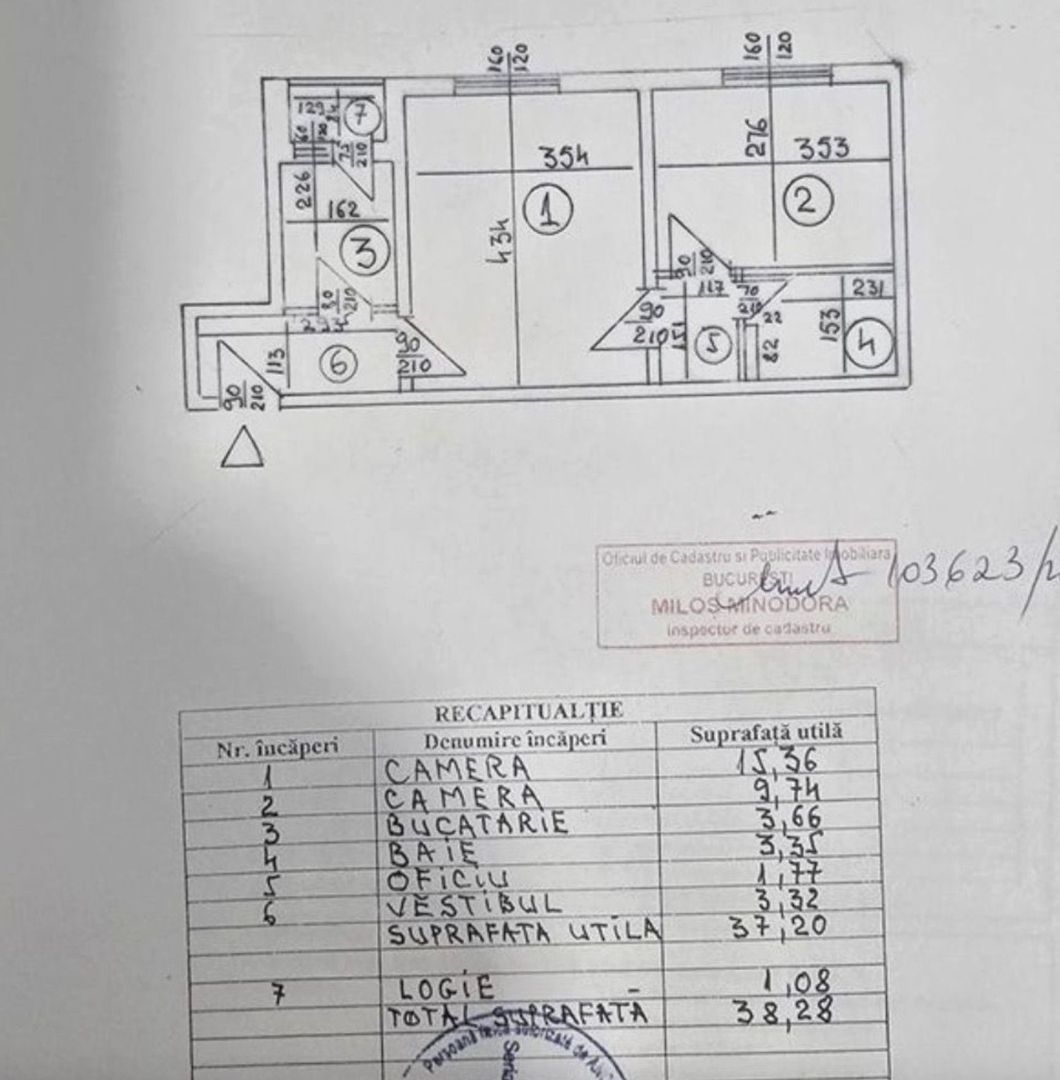 160 120
160 120
129 84
7
60 120
75 210
354
276
353
226
162
1
2
434
3
80 210
90 210
117
70 210
231
90 210
22
153
4
151
5
82
113
6
90 210
90 210
Oficiul de Cadastru si Publicitate Imobiliara
BUCUREȘTI
103623/
MILOȘ MINODORA
inspector de cadastru
RECAPITUALȚIE
Nr. încăperi Denumire încăperi Suprafață utilă
1 CAMERA 15,36
2 CAMERA 9,74
3 BUCATARIE 3,66
4 BAIE 3,35
5 OFICIU 1,77
6 VESTIBUL 3,32
SUPRAFATA UTILA 37,20
7 LOGIE - 1,08
TOTAL SUPRAFATA 38,28
Persoană fizică autorizată de
Seria